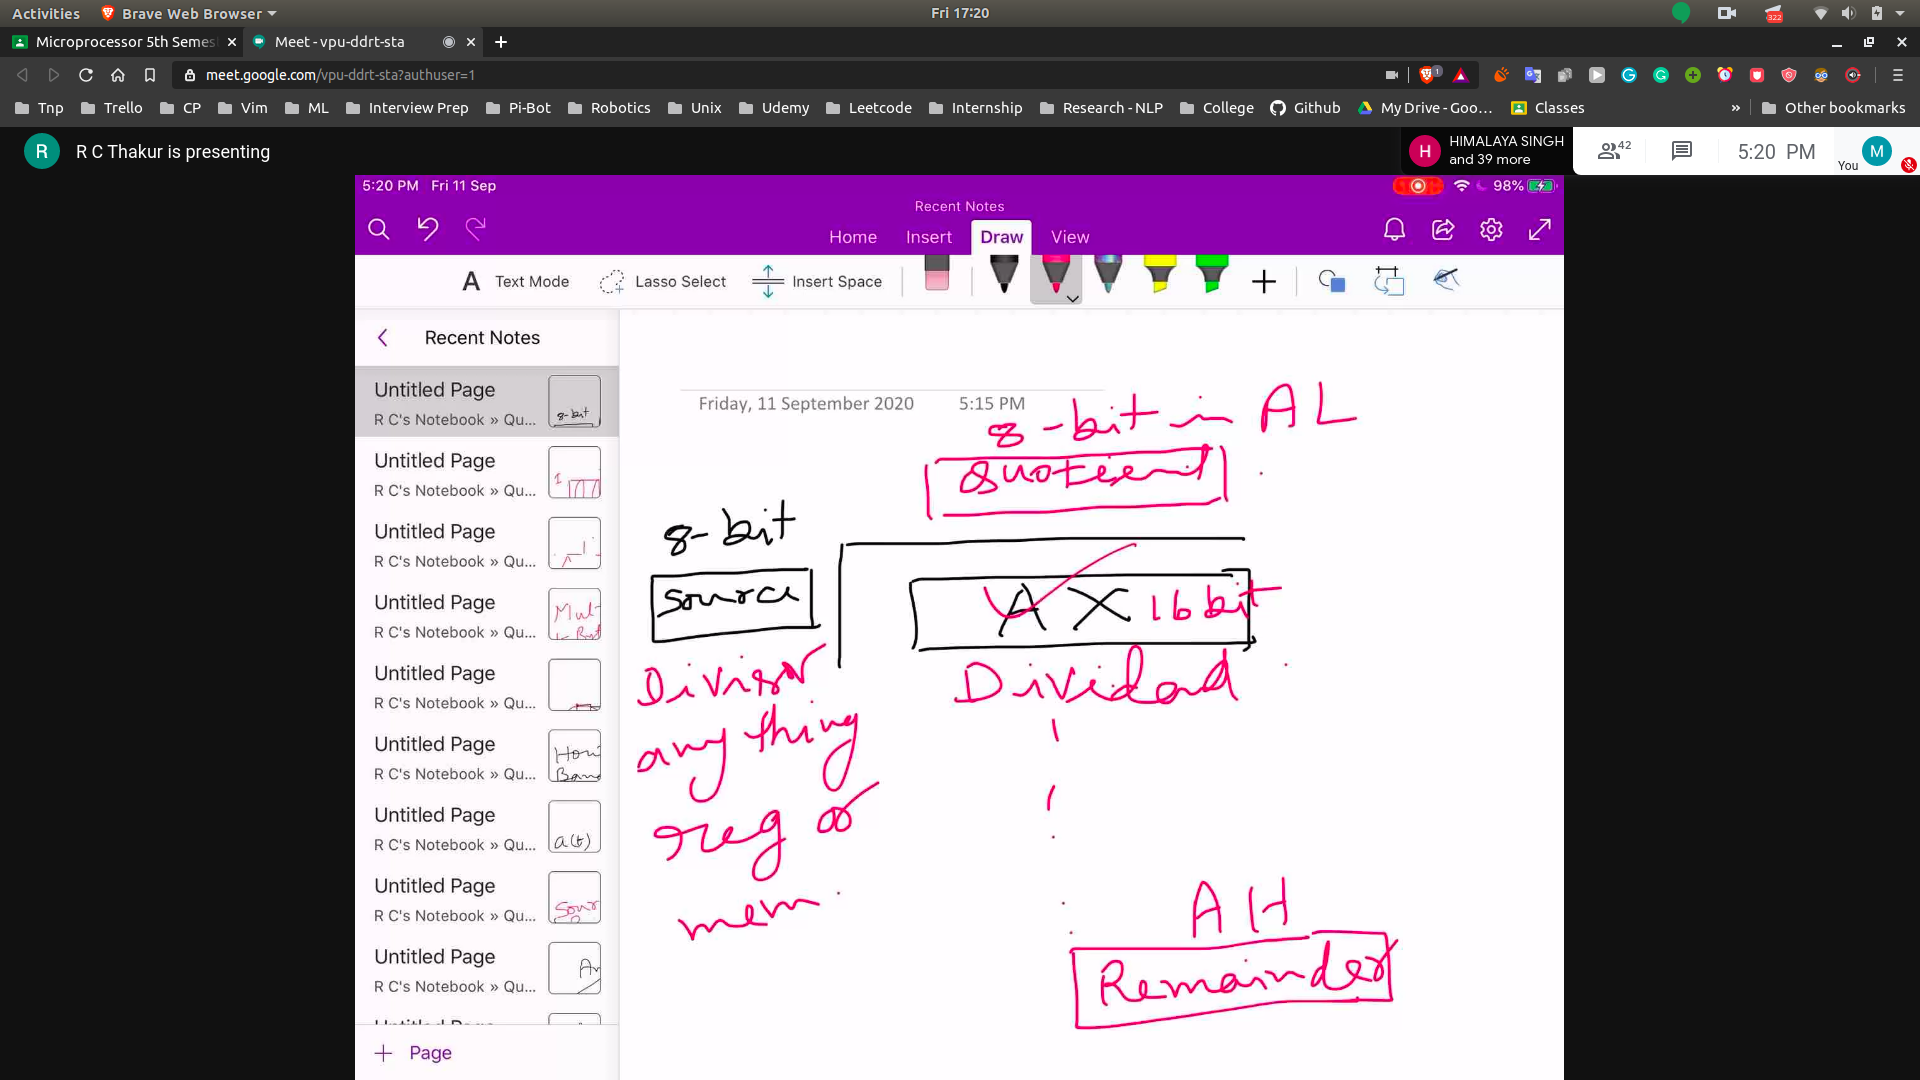 Activities Brave Web Browser Fri 17:20 322
Microprocessor 5th Semes Meet - vpu-ddrt-sta
meet.google.com/vpu-ddrt-sta?authuser=1 1
Tnp Trello CP Vim ML Interview Prep Pi-Bot Robotics Unix Udemy Leetcode Internship Research - NLP College Github My Drive - Goo… Classes » Other bookmarks
R R C Thakur is presenting
H HIMALAYA SINGH
and 39 more
42
5:20 PM
You M
5:20 PM Fri 11 Sep 98%
Recent Notes
Home Insert Draw View
A Text Mode Lasso Select Insert Space
Recent Notes
Untitled Page
R C's Notebook » Qu...
8-bit
Untitled Page
R C's Notebook » Qu...
Untitled Page
R C's Notebook » Qu...
Untitled Page
R C's Notebook » Qu...
Mul-
Untitled Page
R C's Notebook » Qu...
Untitled Page
R C's Notebook » Qu...
Untitled Page
R C's Notebook » Qu...
a(t)
Untitled Page
R C's Notebook » Qu...
Sour
Untitled Page
R C's Notebook » Qu...
Page
Friday, 11 September 2020 5:15 PM
8-bit in AL
quotient
8-bit
Source
AX 16 bit
Divisor
Dividend
anything
reg or
mem
AH
Remainder